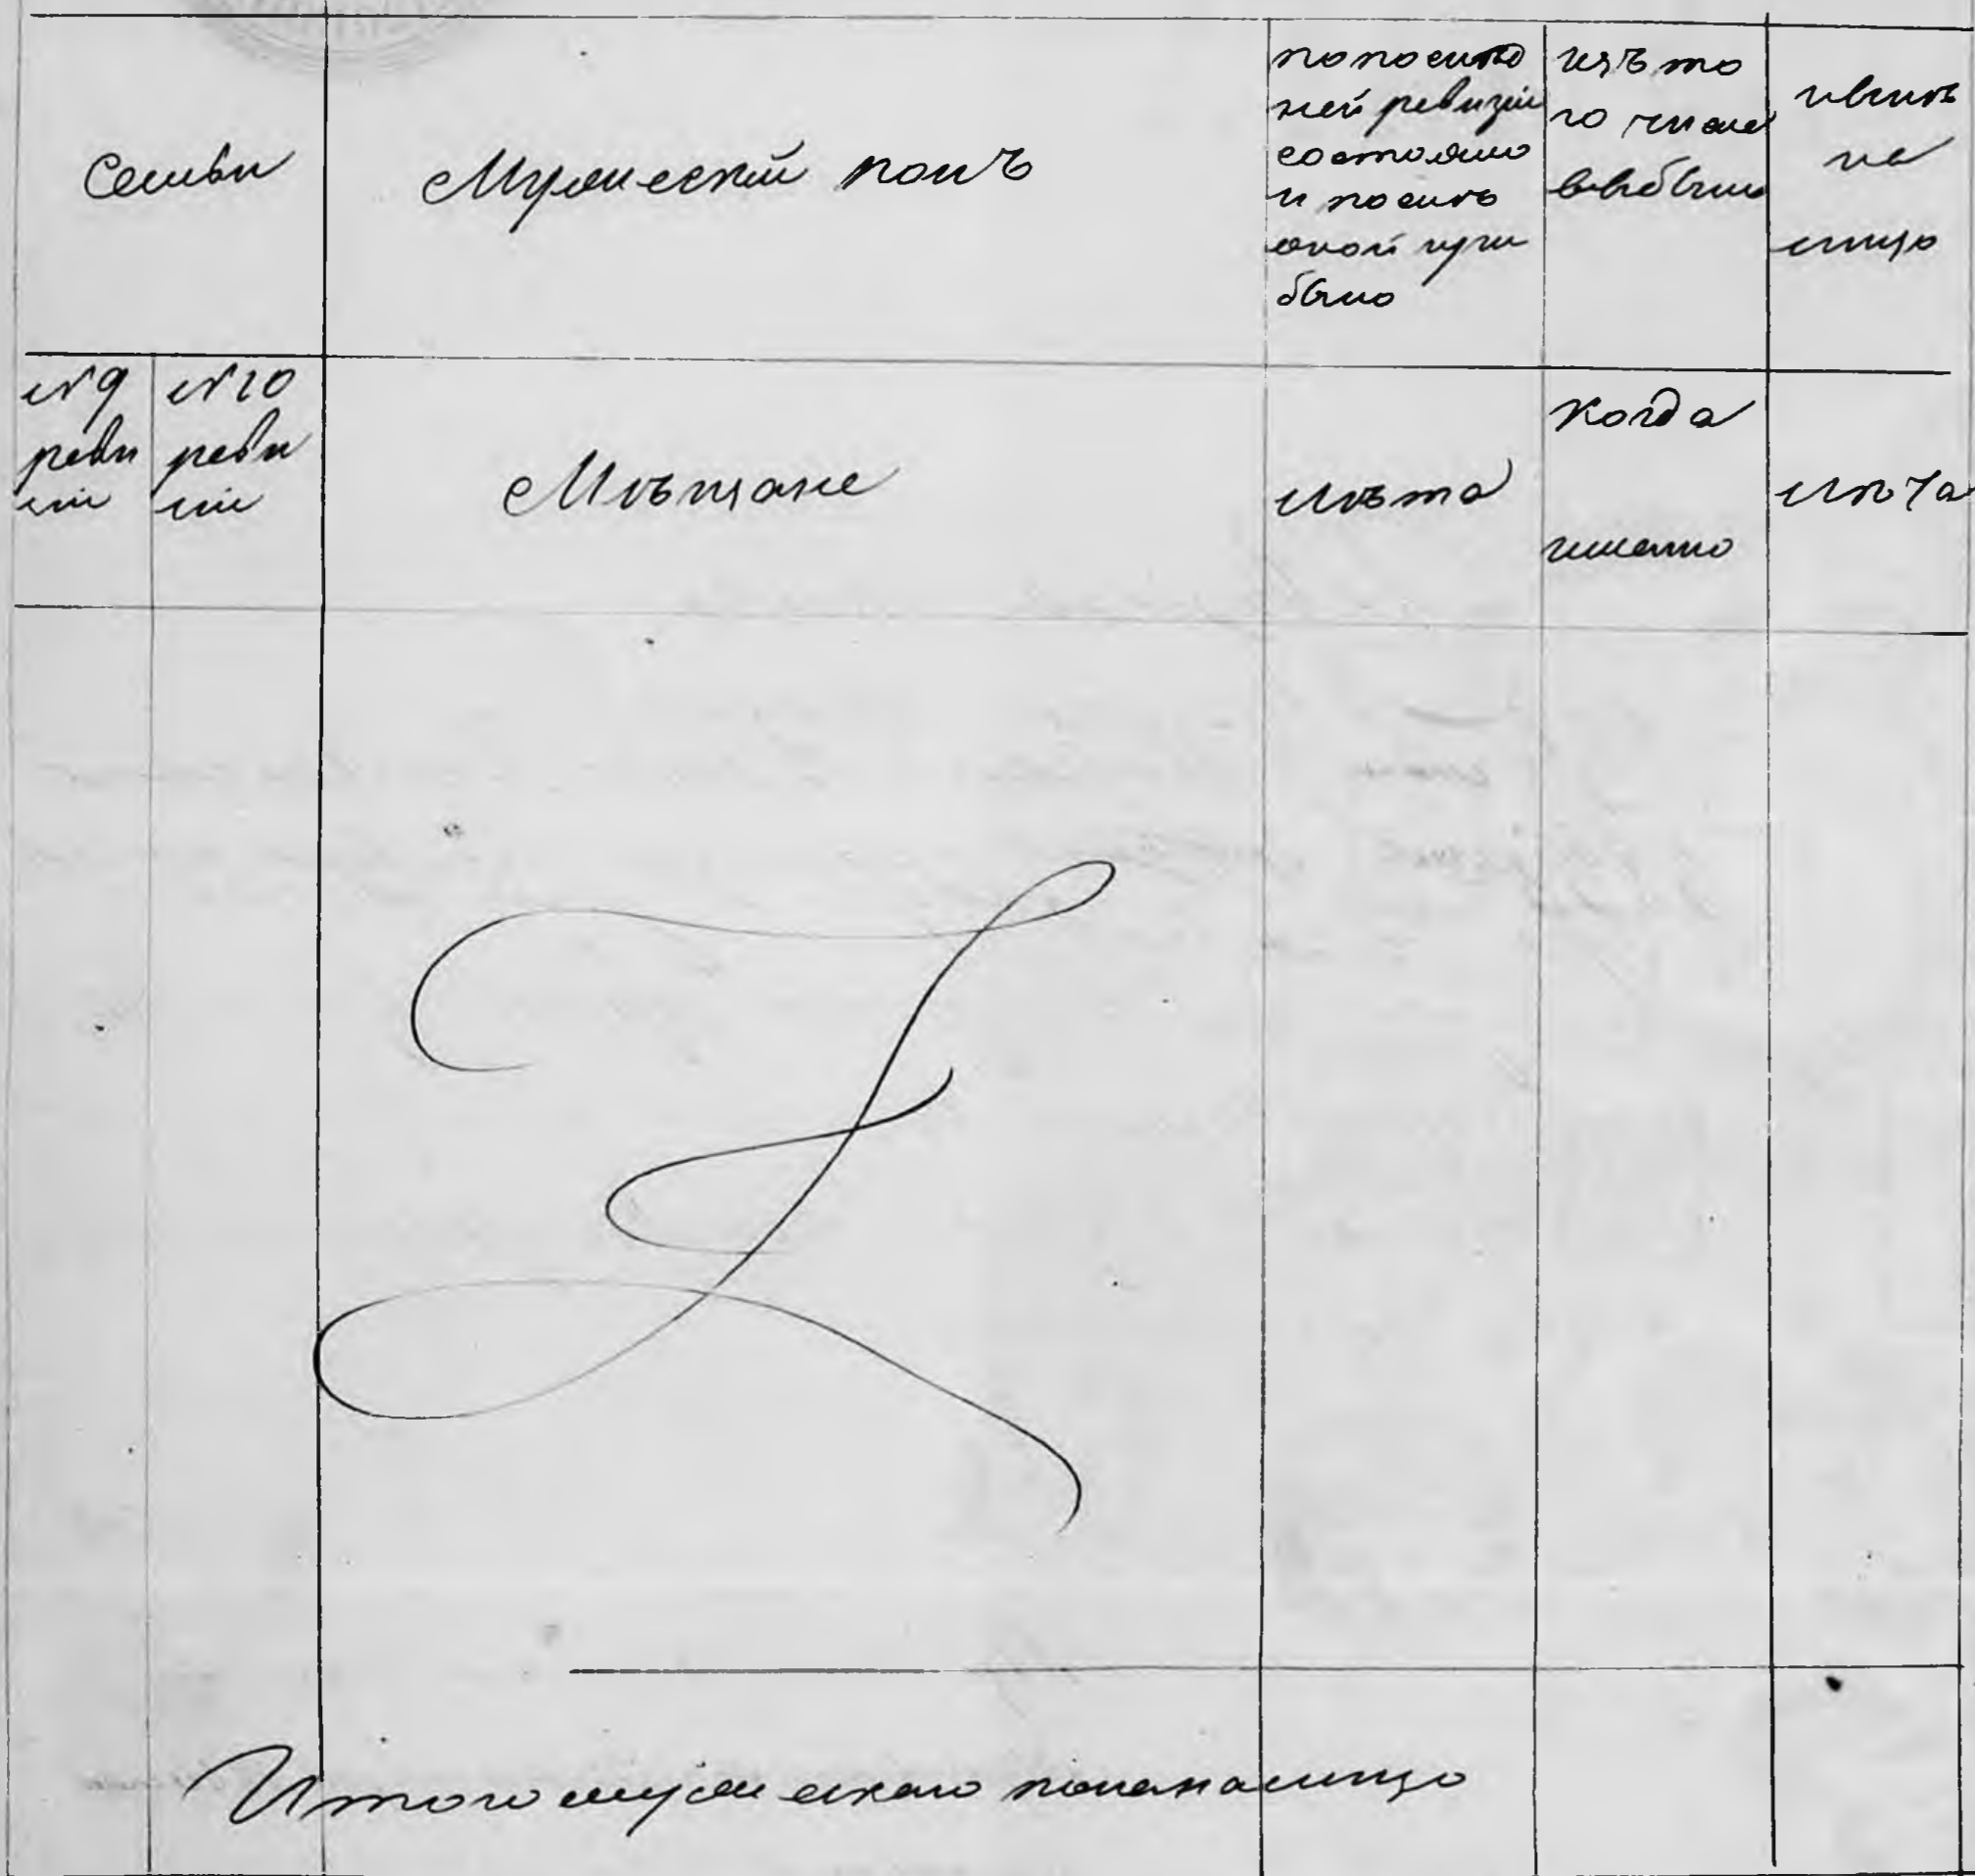 Семьи
Мужескій полъ
попослѣд
ней ревизіи
состояло
и послѣ
оной при
было
изъ то
го числа
выбыло
нынѣ
на
лицо
№ 9
реви
зіи
№ 10
реви
зіи
Мѣщане
лѣта
когда
именно
лѣта
Итого мужескаго пола налицо